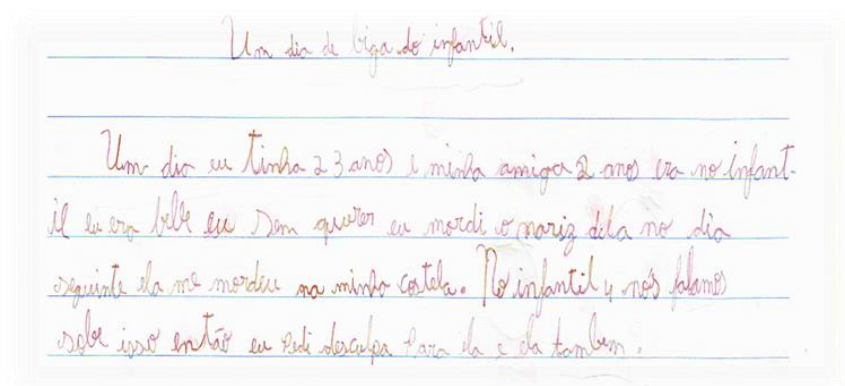 Um dia de biga do infantil.
Um dia eu tinha 2 3 anos e minha amiga 2 anos era no infant-
il eu era bebe eu sem querer eu mordi o nariz dela no dia
seguinte ela me mordeu na minha costela. No infantil 4 nós falamos
sobe isso então eu pedi desculpa para ela e ela tambem.